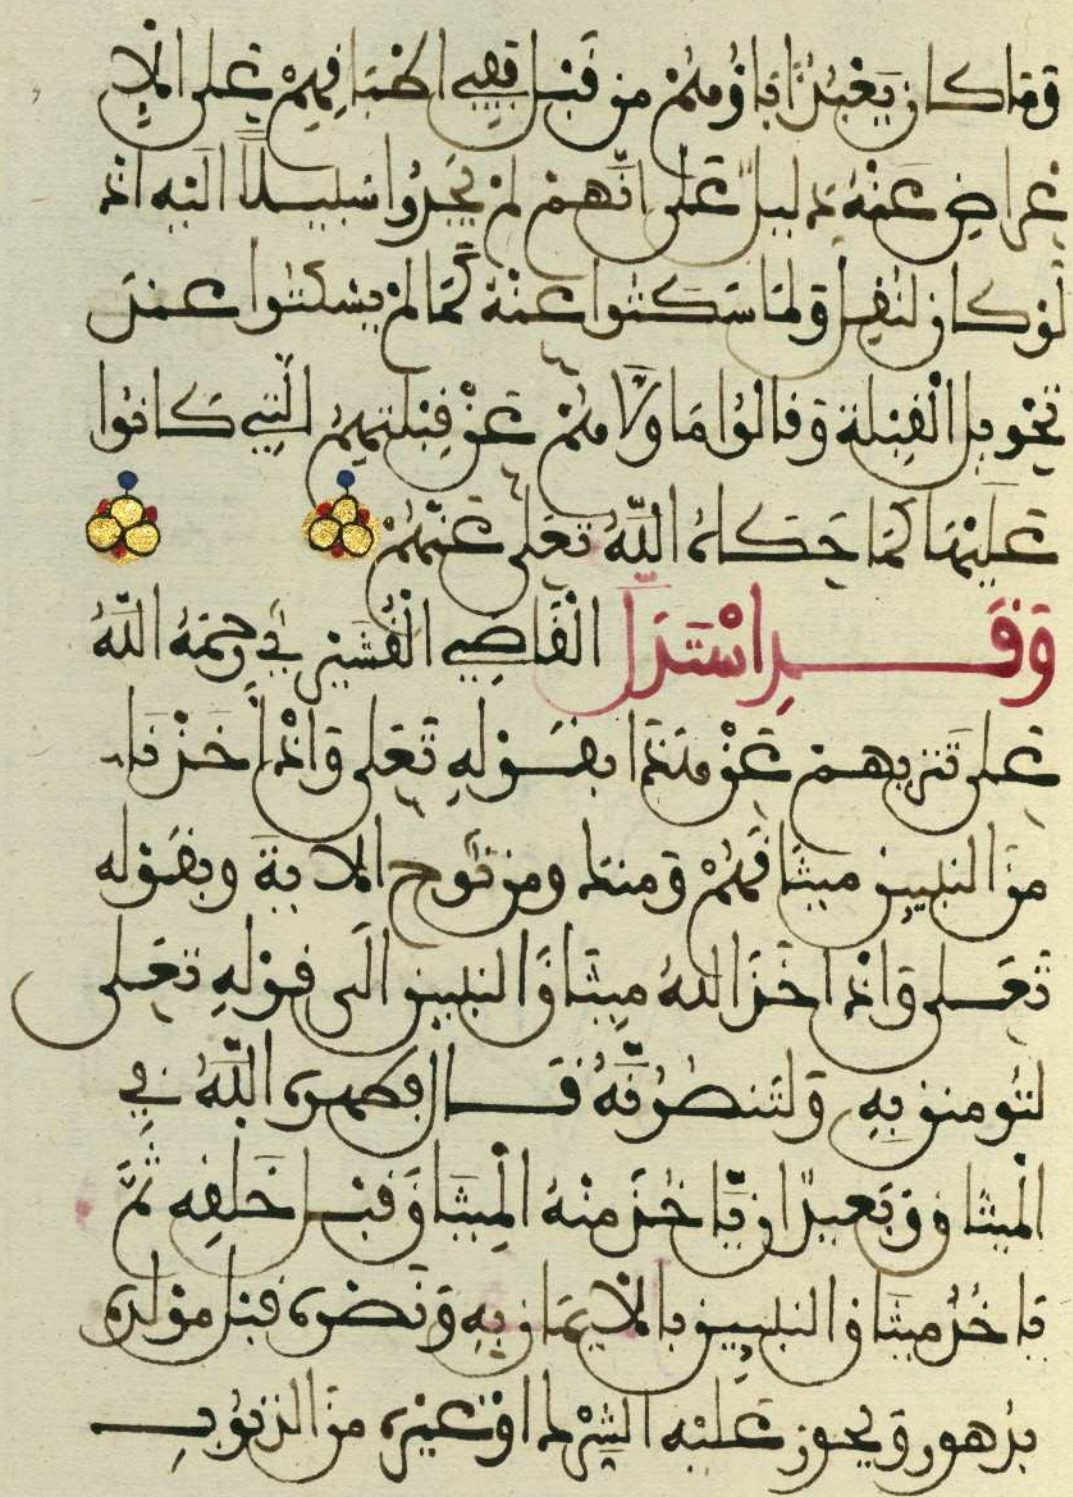 وَمَا كَانَ يَعْبُدُ ءَابَاؤُهُمْ مِن قَبْلُ فَفِي اطْبَاقِهِمْ عَلَى الْاِ
عْرَاضِ عَنْهُ دَلِيلٌ عَلَى انَّهُمْ لَمْ يَجِدُوا سَبِيلًا اليْهِ اذْ
لَوْ كَانَ لَنُقِلَ وَلَمَا سَكَتُوا عَنْهُ كَمَا لَمْ يَسْكُتُوا عِنْدَ
تَحْوِيلِ الْقِبْلَةِ وَقَالُوا مَا وَلَّاهُمْ عَنْ قِبْلَتِهِمُ الَّتِي كَانُوا
عَلَيْهَا كَمَا حَكَاهُ اللَّهُ تَعَلَى عَنْهُمْ
وَقَدِ اسْتَدَلَّ الْقَاضِي الْقُشَيْرِيُّ رَحِمَهُ اللَّهُ
عَلَى تَنْزِيهِهِمْ عَنْ هَذَا بِقَوْلِهِ تَعَلَى وَاذْ اخَذْنَا
مِنَ النَّبِيِّينَ مِيثَاقَهُمْ وَمِنْكَ وَمِن نُّوحٍ الْايَةَ وَبِقَوْلِهِ
تَعَلَى وَاذَ اخَذَ اللَّهُ مِيثَاقَ النَّبِيِّينَ الَى قَوْلِهِ تَعَلَى
لَتُومِنُنَّ بِهِ وَلَتَنصُرُنَّهُ قَالَ فَطَهَّرَهُ اللَّهُ فِي
الْمِيثَاقِ وَبَعِيدٌ ان يَّاخُذَ مِنْهُ الْمِيثَاقَ قَبْلَ خَلْقِهِ ثُمَّ
يَاخُذُ مِيثَاقَ النَّبِيِّينَ بِالْايمَانِ بِهِ وَنَصْرِهِ قَبْلَ مَوْلِدِهِ
بِدُهُورٍ وَيَجُوزَ عَلَيْهِ الشِّرْكُ اوْ غَيْرُهُ مِنَ الذُّنُوبِ